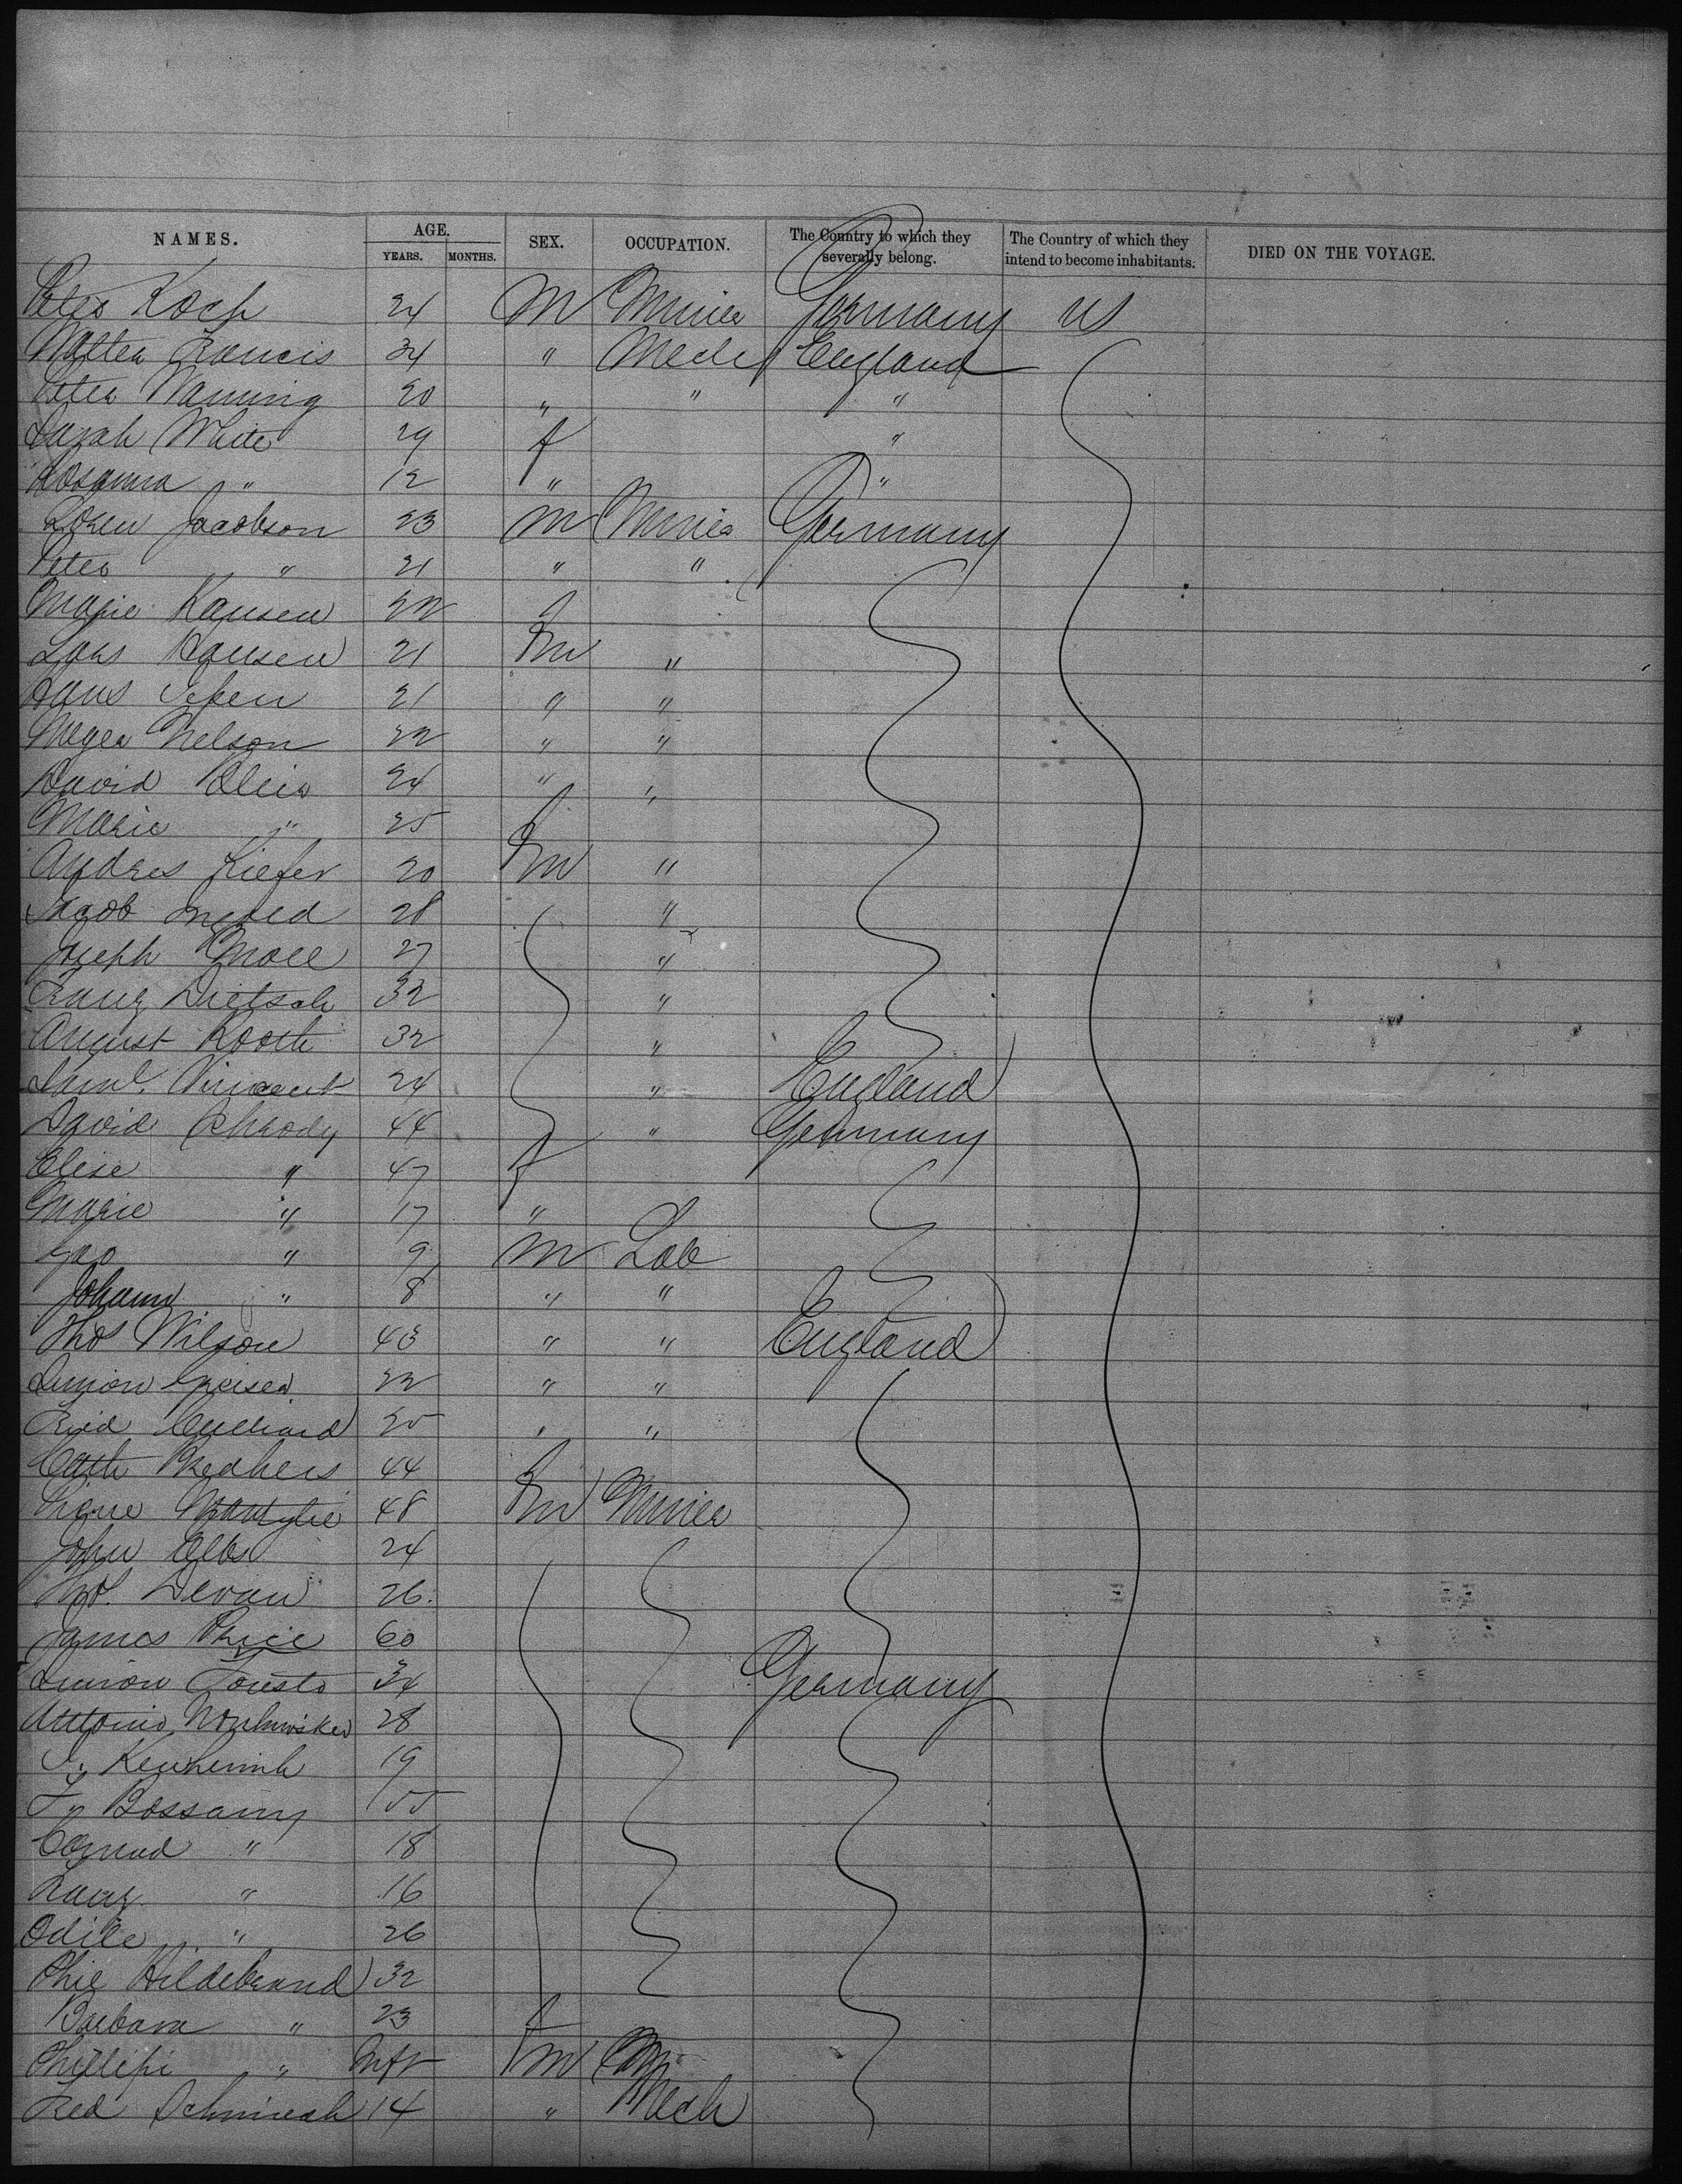 NAMES. AGE. SEX. OCCUPATION. The Country to which they severally belong. The Country of which they intend to become inhabitants. DIED ON THE VOYAGE.
YEARS. MONTHS.
Peter Koch 24 M Miner Germany US
Walter Francis 34 " Mech England
Peter Manning 20 " " "
Sarah White 29 f "
Rosanna " 12 " "
Loren Jacobson 23 M Miner Germany
Peter " 21 " "
Marie Hansen 22 f
Lars Hansen 21 M "
Hans 21 " "
Meyer Nelson 22 " "
David 24 " "
Marie " 25 f
Andres Kiefer 20 M "
Jacob 28 "
Joseph 27 "
Franz Dietsch 32 "
August Rooth 32 "
Saml Vincent 24 " England
David 44 " Germany
Elise " 47 f
Marie " 17 "
Geo " 9 M Lab
Johann " 8 " "
Thos Wilson 43 " " England
Simon 22 " "
20 " "
Cath 44 f
48 M Miner
John 24
Thos. Devan 26
James Price 60
Simon 34 Germany
Antonio 28
19
F. Bossamy 55
Conrad " 18
Franz " 16
Odile " 26
Phil Hildebrand 32
Barbara " 23 f
Phillipi " Inft M
Fred 14 " Mech